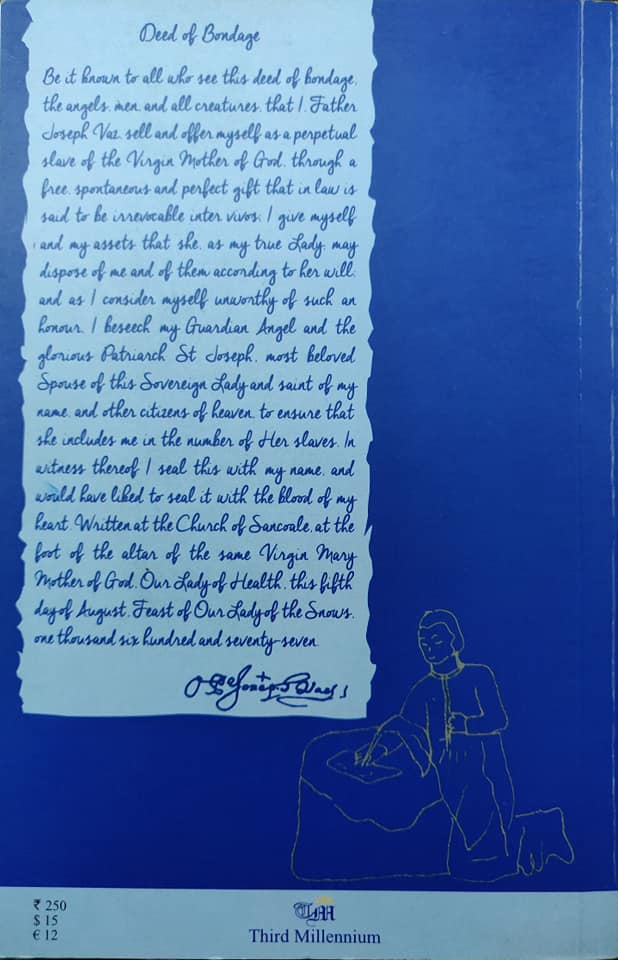 Deed of Bondage
Be it known to all who see this deed of bondage,
the angels, men, and all creatures, that I, Father
Joseph Vaz, sell and offer myself as a perpetual
slave of the Virgin Mother of God, through a
free, spontaneous and perfect gift that in law is
said to be irrevocable inter vivos; I give myself
and my assets that she, as my true Lady, may
dispose of me and of them according to her will;
and as I consider myself unworthy of such an
honour, I beseech my Guardian Angel and the
glorious Patriarch St Joseph, most beloved
Spouse of this Sovereign Lady and saint of my
name, and other citizens of heaven, to ensure that
she includes me in the number of Her slaves. In
witness thereof I seal this with my name, and
would have liked to seal it with the blood of my
heart. Written at the Church of Sancoale, at the
foot of the altar of the same Virgin Mary
Mother of God, Our Lady of Health, this fifth
day of August, Feast of Our Lady of the Snows,
one thousand six hundred and seventy-seven.
₹ 250
$ 15
€ 12
TM
Third Millennium